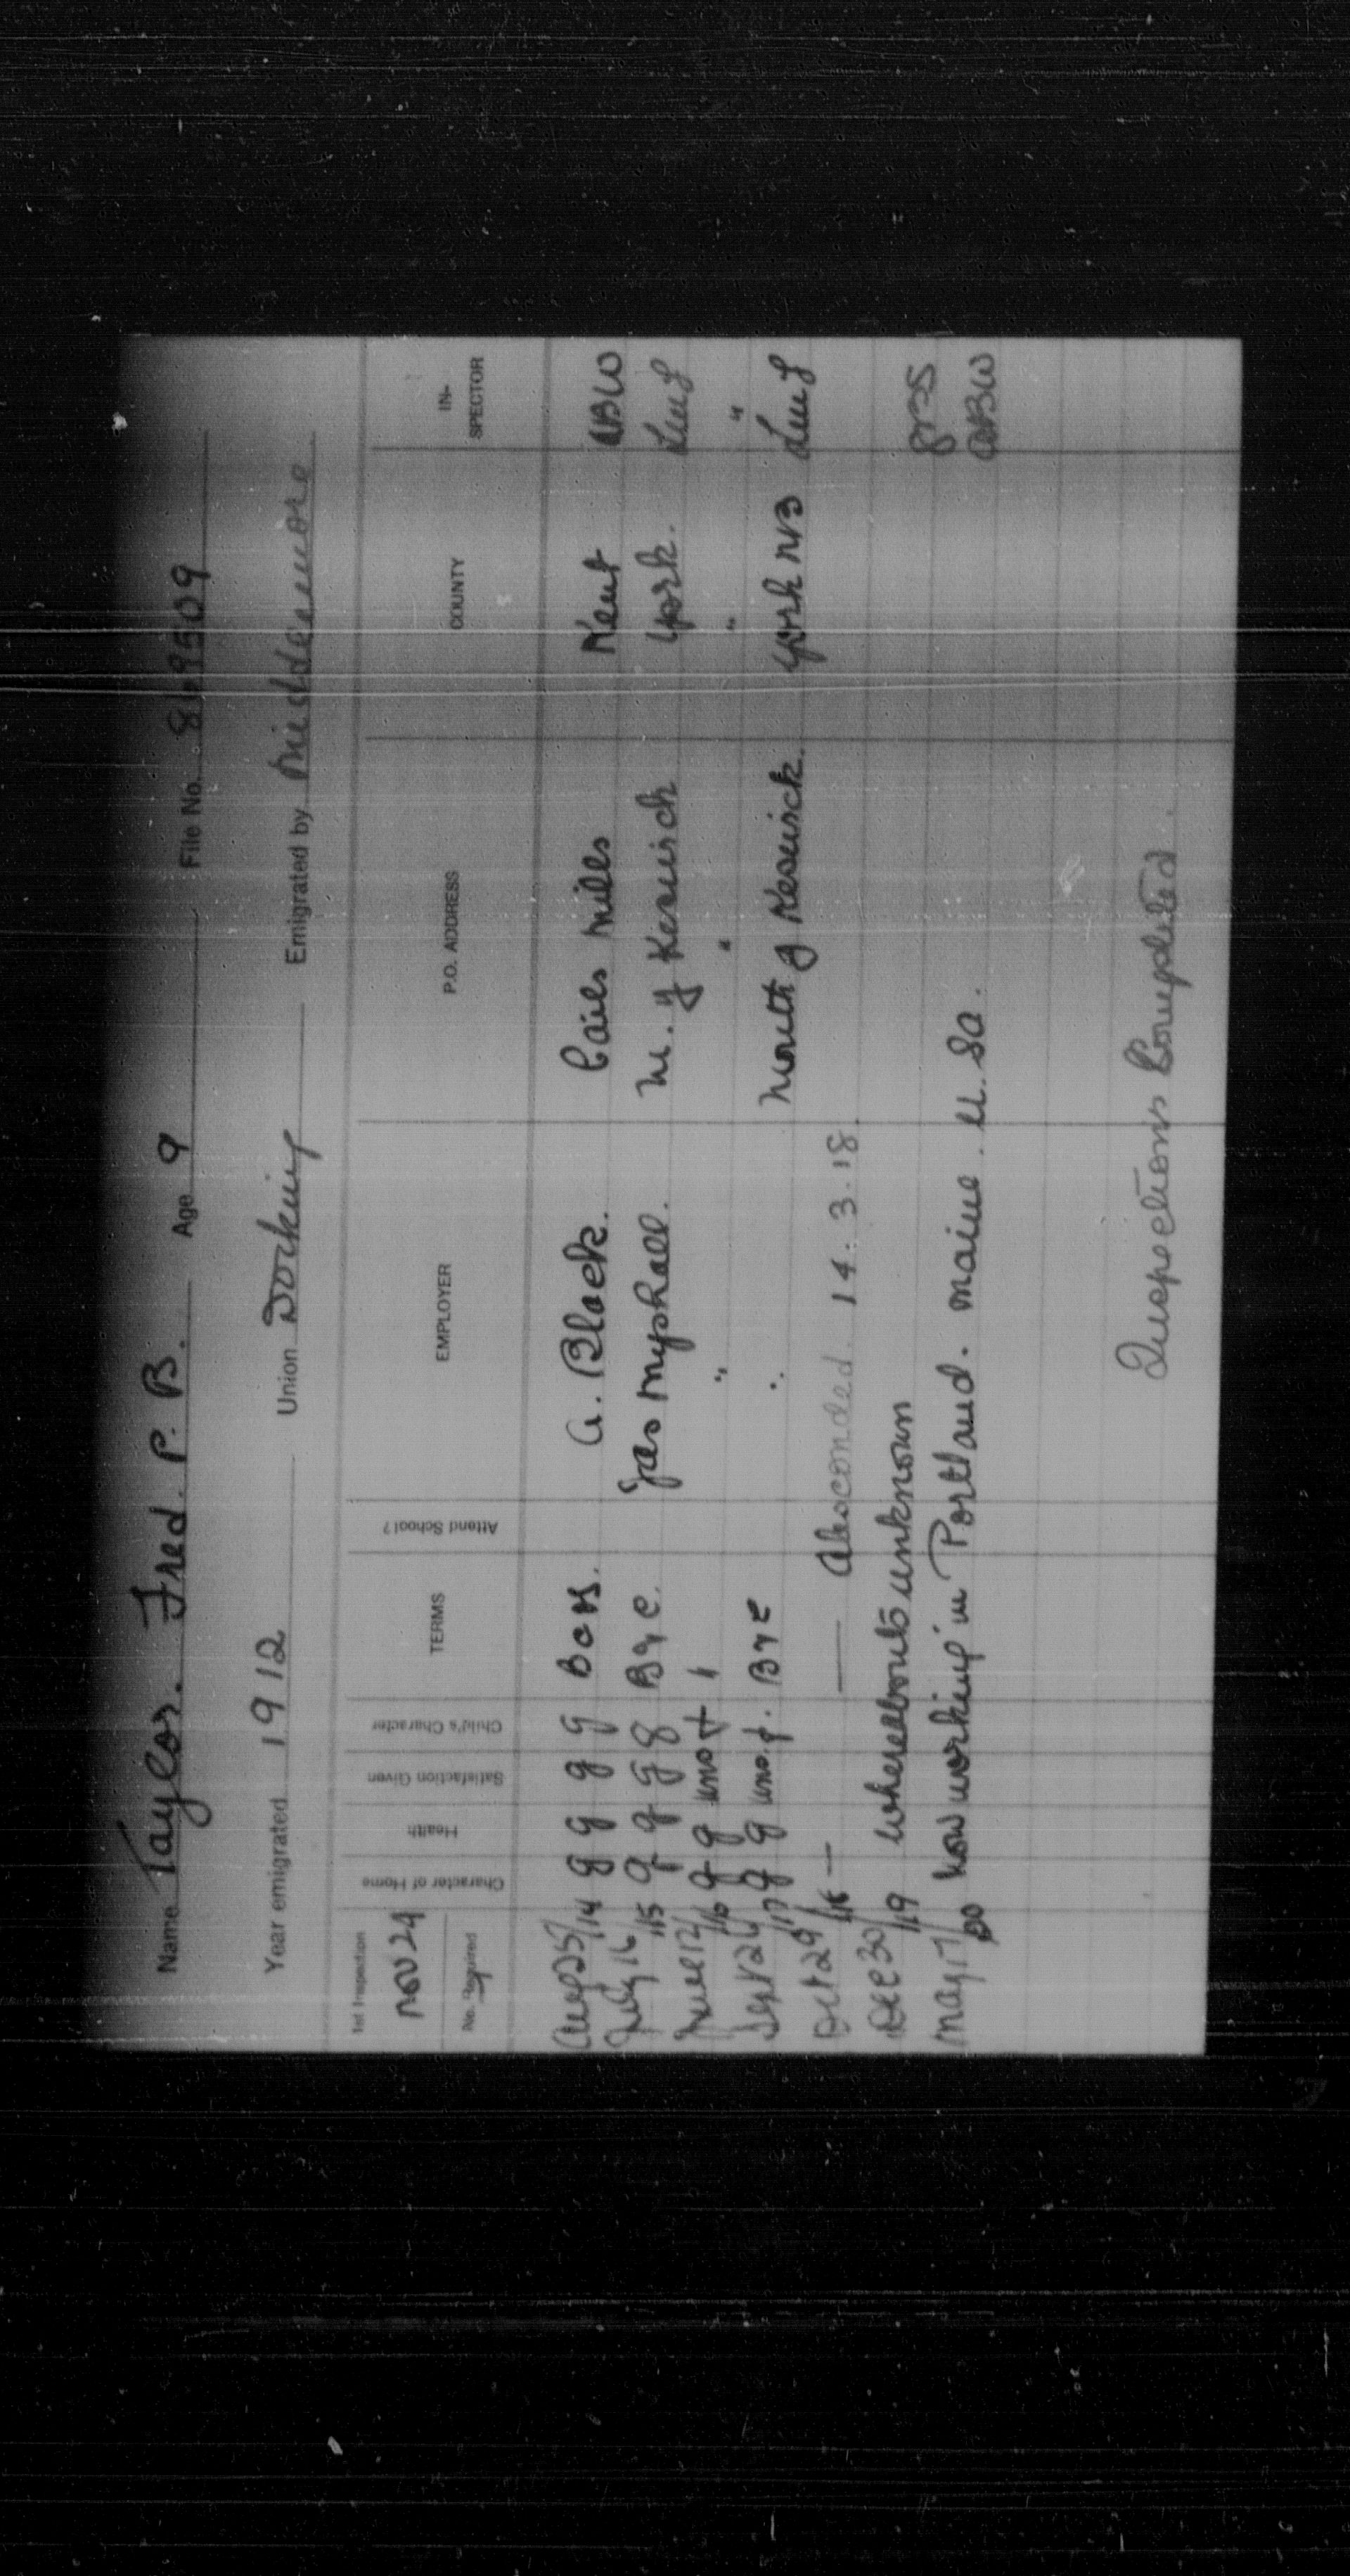 Name Taylor. Fred. P. B. Age 9 File No. 869509
Year emigrated 1912 Union Dorking Emigrated by Middlemore
1st Inspection Character of Home Health Satisfaction Given Child's Character TERMS Attend School? EMPLOYER P.O. ADDRESS COUNTY IN-SPECTOR
Nov 24
No. Required
Aug 25/14 g g g g B C S. A. Black. Cails Mills Kent
July 16/15 g g g g B & C. Jas Myshall. M. of Keswick York.
June 12/16 g g uns f " " " " "
Sept 26/17 g g uns. f. B & C " Mouth of Keswick. York NB
Oct 29/18 — — Absconded. 14.3.18
Dec 30/19 Whereabouts unknown
May 17/20 Now working in Portland. Maine. U.S.A.
Inspections Completed.